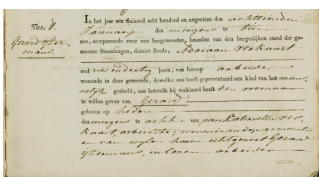 Nro. 8.
In het jaar een duizend acht honderd en negentien den achttienden
Januarij des morgens te tien
ure, compareerde voor ons burgemeester, beambte van den burgerlijken stand der ge-
meente Steenbergen, district Breda, Adriaan
oud jaren, van beroep arbeider
wonende in deze gemeente, dewelke ons heeft gepresenteerd een kind van het man-
nelijk geslacht, aan hetwelk hij verklaard heeft den voornaam
te willen geven van Gerard
geboren op heden
des morgens te acht ure, van
arbeidster, wonende in deze gemeente
en van wijlen haren echtgenoot Gerard
in leven arbeider